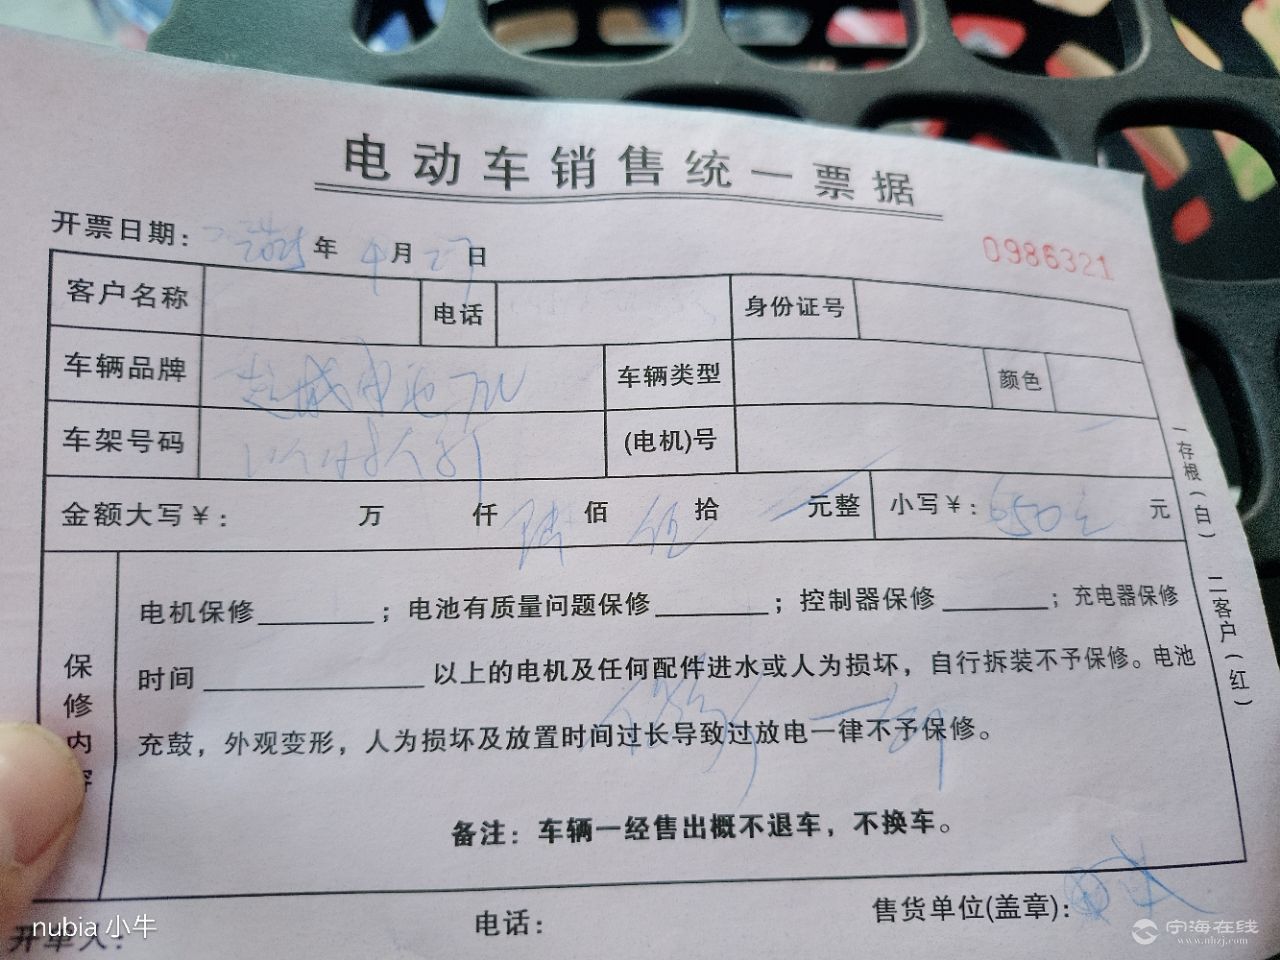 电动车销售统一票据
开票日期: 2025年 4月 27日
0986321
客户名称 电话 身份证号
车辆品牌 超威电池72V 车辆类型 颜色
车架号码 以旧换新 (电机)号
金额大写￥: 万 仟 陆佰 伍拾 元整 小写￥: 650元 元
保修内容
电机保修______; 电池有质量问题保修______; 控制器保修______; 充电器保修
时间____________以上的电机及任何配件进水或人为损坏，自行拆装不予保修。电池
充鼓，外观变形，人为损坏及放置时间过长导致过放电一律不予保修。
保 一年
备注：车辆一经售出概不退车，不换车。
一存根(白) 二客户(红)
开单人: 电话: 售货单位(盖章):
nubia 小牛
宁海在线
www.nhzj.com